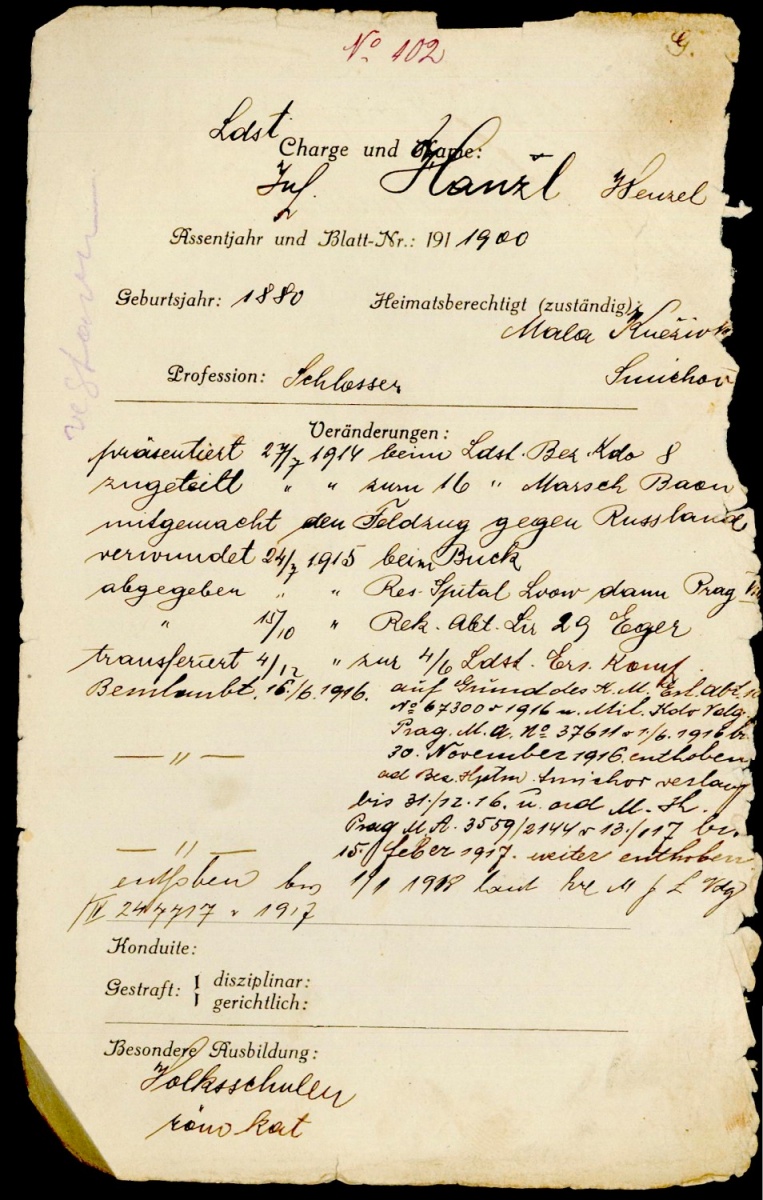 No 102
G.
Ldst
Charge und Name:
Inf. Hanzl Wenzel
Assentjahr und Blatt-Nr.: 191 1900
Geburtsjahr: 1880 Heimatsberechtigt (zuständig):
Mala
Profession: Schlosser Smichov
Veränderungen:
präsentiert 27/7 1914 beim Ldst. Bez. Kdo 8
zugeteilt " " zum 16 " Marsch Baon
mitgemacht den Feldzug gegen Russland
verwundet 24/7 1915 beim Buck
abgegeben " " Res. Spital Lvow dann Prag
" 15/10 " Rek. Abt. Lir 29 Eger
transferiert 4/12 " zur 4/6 Ldst. Ers. Komp.
Beurlaubt. 16./6. 1916. auf Grund des K. M. Erl. Abt.
No 67300 v 1916 u. Mil. Kdo Vdg.
Prag. M. A. No 37611 v 1/6. 1916
30. November 1916. enthoben
— " — ad Bez. Hptm. Smichov
bis 31./12. 16. u. ad M. K.
Prag M. A. 3559/2144 v 13./1 17
— " — 15. feber 1917. weiter enthoben
enthoben bis 1/1 1918 laut M f L Vdg
1917
Konduite:
Gestraft: { disziplinar:
gerichtlich:
Besondere Ausbildung:
Volksschulen
röm kat